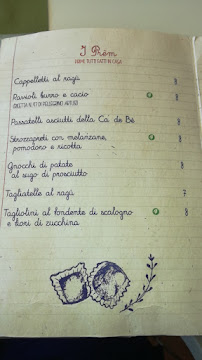 I Prém
PRIMI TUTTI FATTI IN CASA
Cappelletti al ragù 8
Ravioli burro e cacio 8
RICETTA N. 97 DI PELLEGRINO ARTUSI
Passatelli asciutti della Cà de Bé 8
Strozzapreti con melanzane, 8
pomodoro e ricotta
Gnocchi di patate 8
al sugo di prosciutto
Tagliatelle al ragù 7
Tagliolini al fondente di scalogno 8
e fiori di zucchina